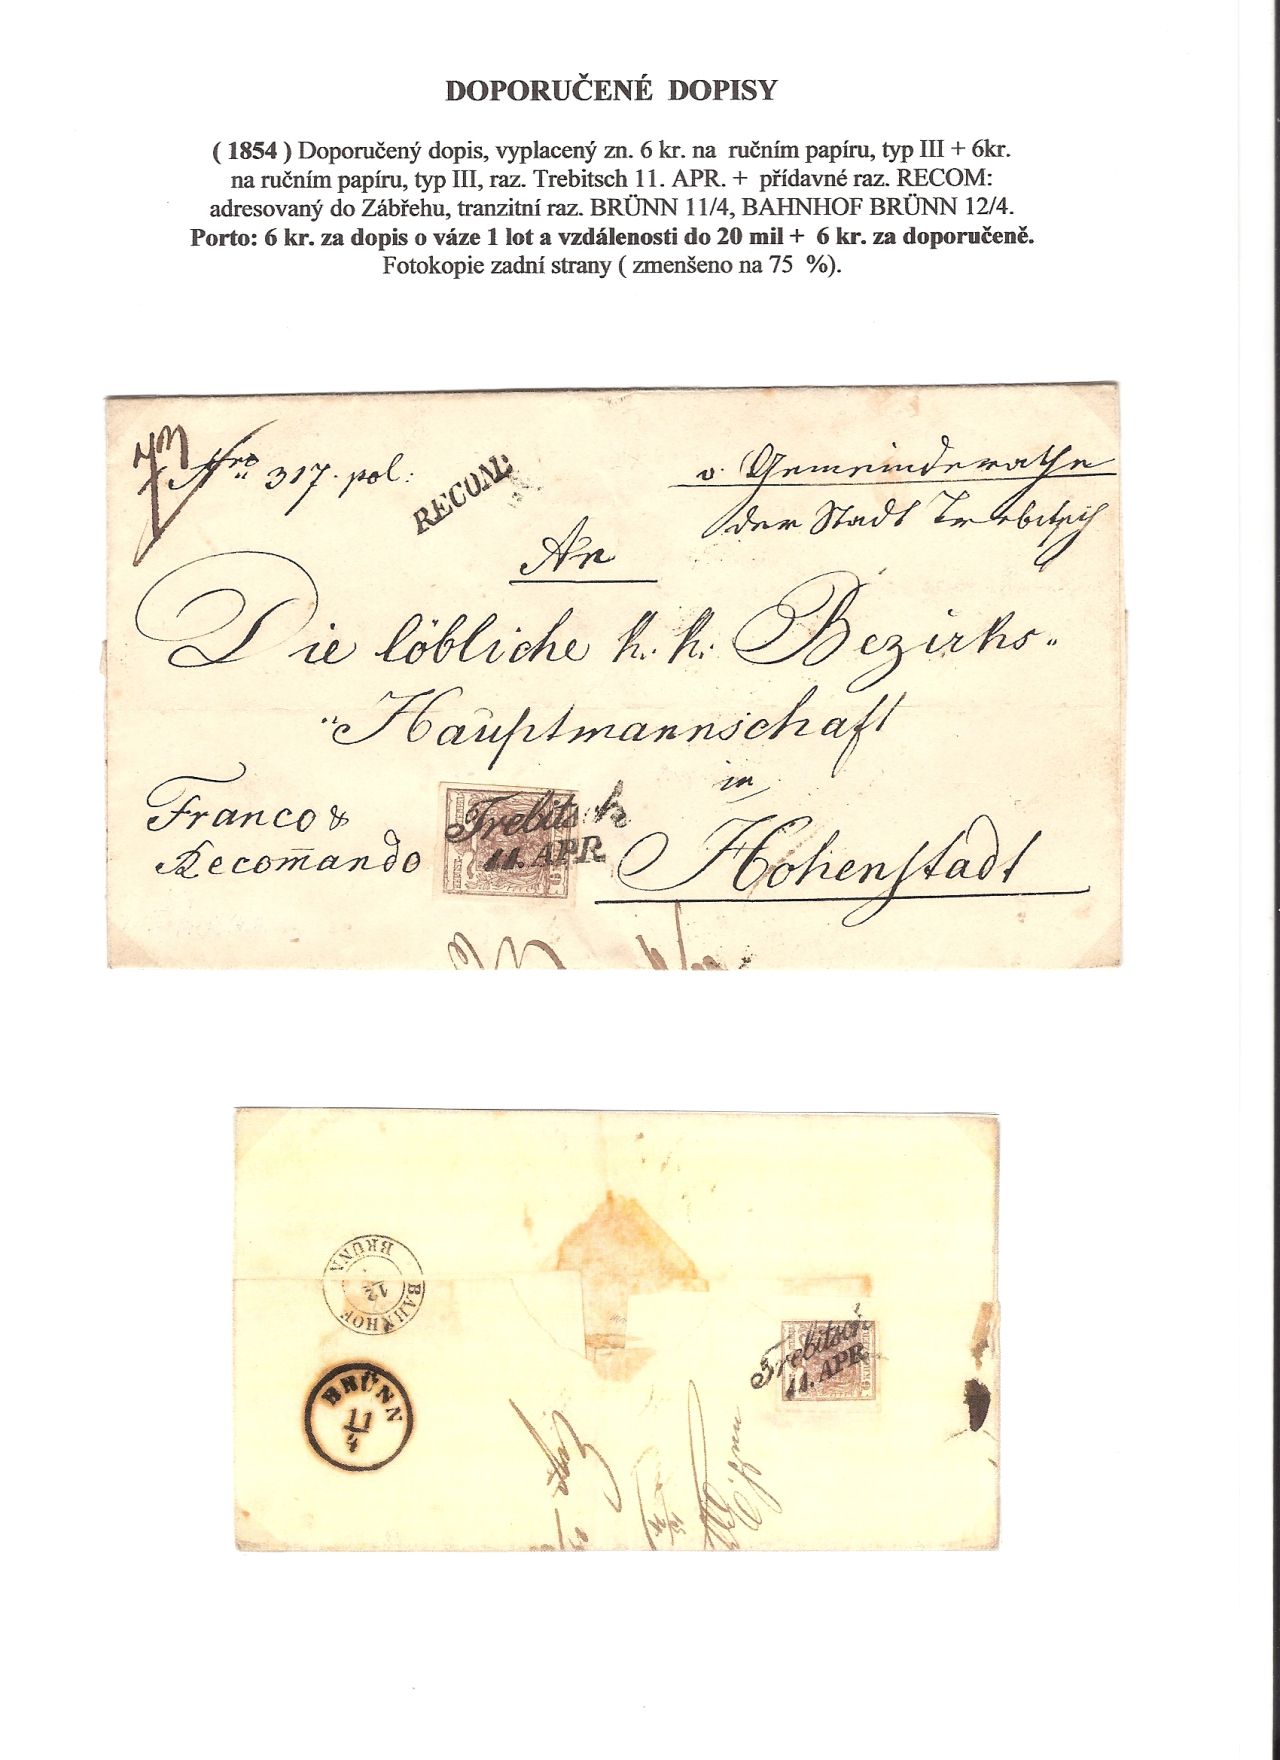 DOPORUČENÉ DOPISY
( 1854 ) Doporučený dopis, vyplacený zn. 6 kr. na ručním papíru, typ III + 6kr.
na ručním papíru, typ III, raz. Trebitsch 11. APR. + přídavné raz. RECOM:
adresovaný do Zábřehu, tranzitní raz. BRÜNN 11/4, BAHNHOF BRÜNN 12/4.
Porto: 6 kr. za dopis o váze 1 lot a vzdálenosti do 20 mil + 6 kr. za doporučeně.
Fotokopie zadní strany ( zmenšeno na 75 %).
Nro 317. pol:
RECOM:
v. Gemeinderathe
der Stadt Trebitsch
An
Die löbliche k. k. Bezirks-
Hauptmannschaft
in
Franco &
Recom̅ando
Trebitsch
11. APR.
Hohenstadt
BAHNHOF
BRÜNN
12
BRÜNN
11
4
Trebitsch
11. APR.